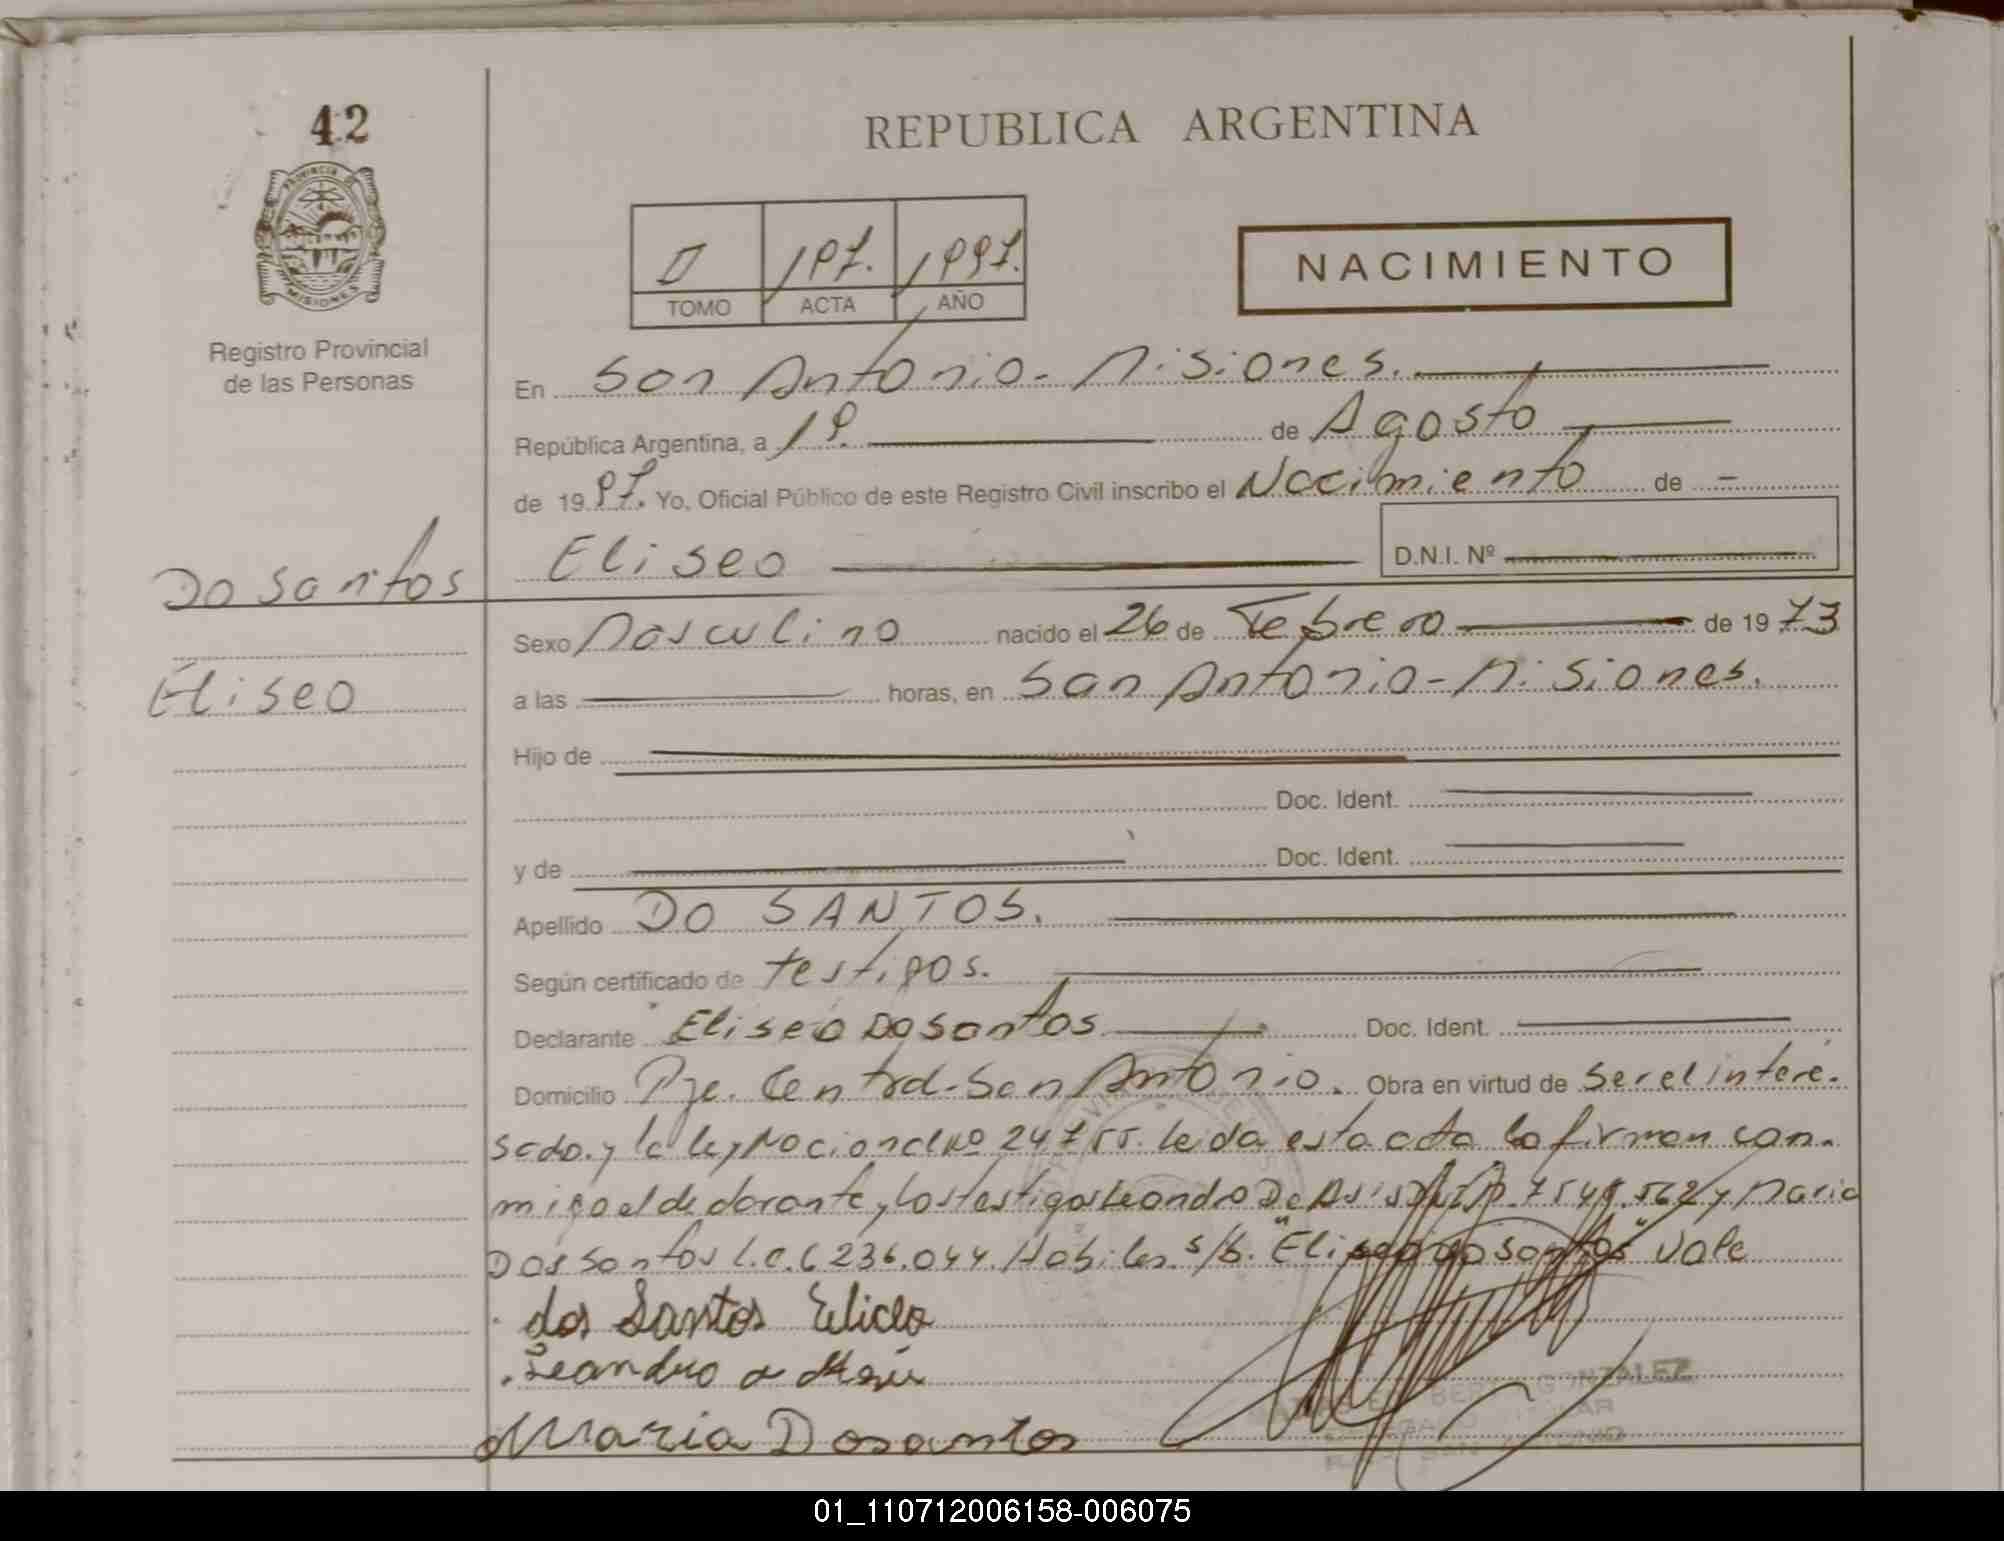 42
REPUBLICA ARGENTINA
PROVINCIA DE
MISIONES
Registro Provincial
de las Personas
II 197. 1997.
TOMO ACTA AÑO
NACIMIENTO
En San Antonio - Misiones.
República Argentina, a 1º. de Agosto
de 1997. Yo, Oficial Público de este Registro Civil inscribo el Nacimiento de -
Eliseo D.N.I. Nº
Do Santos
Eliseo
Sexo Masculino nacido el 26 de Febrero de 1973
a las horas, en San Antonio - Misiones.
Hijo de
Doc. Ident.
y de Doc. Ident.
Apellido DO SANTOS.
Según certificado de testigos.
Declarante Eliseo Do Santos Doc. Ident.
Domicilio Pje. Central - San Antonio. Obra en virtud de ser el intere-
sado. y la ley Nacional Nº 24755. Leida esta acta la firman con-
migo el declarante, y los testigos Leandro De Asis 7548.562 y Maria
Dos Santos L.C. 6236.044. Habiles. s/b. "Eliseo Do Santos" Vale
dos Santos Eliceo
Leandro
Maria Dosantos
GONZALEZ
01_110712006158-006075